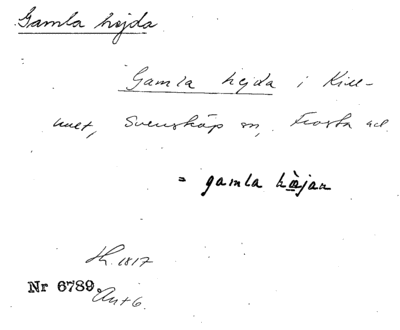 Gamla hejda
Gamla hejda i Kill-
uuet, Svenskäp sn, Frosta hd.
= gamla hæ̀jan
Lh. 1817
Nr 6789.
Ant 6.